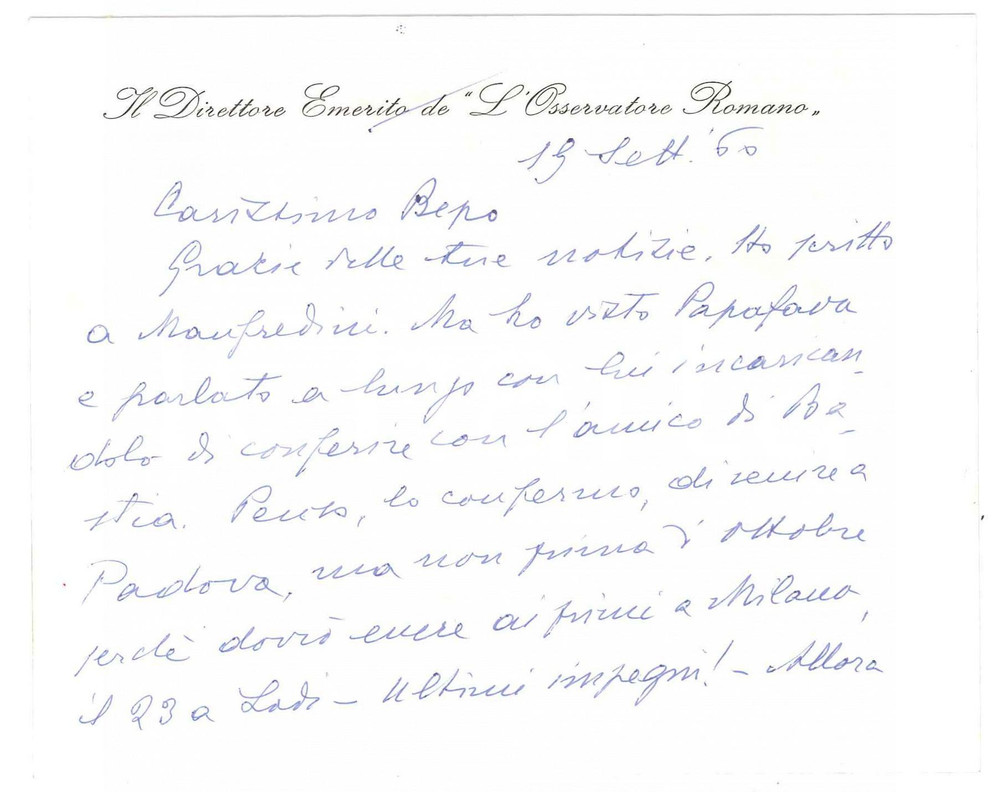 Il Direttore Emerito de "L'Osservatore Romano„
19 Sett. '60
Carissimo Bepo
Grazie delle tue notizie. Ho scritto
a Manfredini. Ma ho visto Papafava
e parlato a lungo con lui incarican_
dolo di conferire con l'amico di Ba_
stia. Penso, lo confermo, di venire a
Padova, ma non prima d'ottobre
perchè dovrò essere ai primi a Milano,
il 23 a Lodi - Ultimi impegni! - Allora